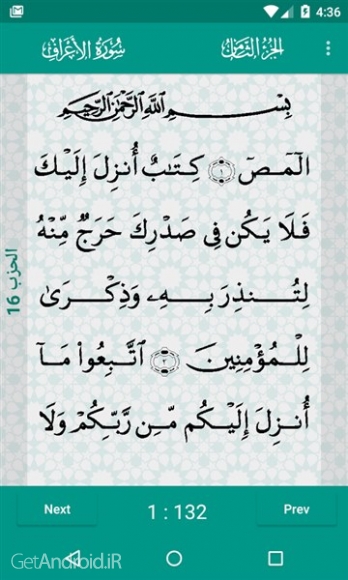 4:36
سُورَةُ الأَعْرَافِ الجُزْءُ الثَّامِنُ
بِسْمِ اللَّهِ الرَّحْمَٰنِ الرَّحِيمِ
الٓمٓصٓ ۝١ كِتَـٰبٌ أُنزِلَ إِلَيْكَ
فَلَا يَكُن فِى صَدْرِكَ حَرَجٌ مِّنْهُ
لِتُنذِرَ بِهِۦ وَذِكْرَىٰ
لِلْمُؤْمِنِينَ ۝٢ ٱتَّبِعُوا۟ مَآ
أُنزِلَ إِلَيْكُم مِّن رَّبِّكُمْ وَلَا
الحزب 16
Next 1 : 132 Prev
GetAndroid.iR